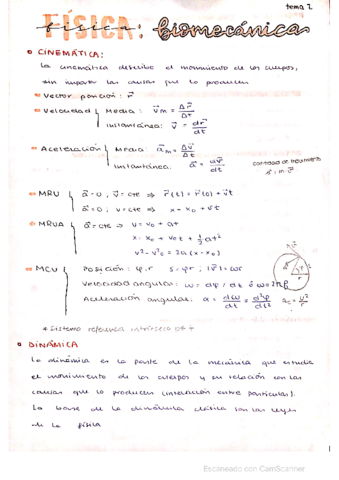 tema 1
FÍSICA: Biomecánica
CINEMÁTICA:
La cinemática describe el movimiento de los cuerpos,
sin importar las causas que lo producen
Vector posición: r⃗
Velocidad { Media: v⃗m = Δr⃗/Δt
Instantánea: v⃗ = dr⃗/dt
Aceleración { Media: a⃗m = Δv⃗/Δt
Instantánea: a⃗ = dv⃗/dt
cantidad de movimiento
p⃗ = m·v⃗
MRU { a⃗=0; v⃗=cte ⇒ r⃗(t) = r⃗(0) + v⃗t
a⃗=0; v=cte ⇒ x = x₀ + vt
MRUA { a⃗=cte ⇒ v = v₀ + at
x = x₀ + v₀t + ½at²
v²-v²₀ = 2a(x-x₀)
MCU { Posición: φ, r s=φr; |v⃗|=ωr
Velocidad angular: ω = dφ/dt ó ω=2πf
Aceleración angular: α = dω/dt = d²φ/dt² ac=v²/r
* Sistema referencia intrínseco
DINÁMICA
La dinámica es la parte de la mecánica que estudia
el movimiento de los cuerpos y su relación con las
causas que lo producen (interacción entre partículas).
La base de la dinámica clásica son las leyes
de la física
Escaneado con CamScanner